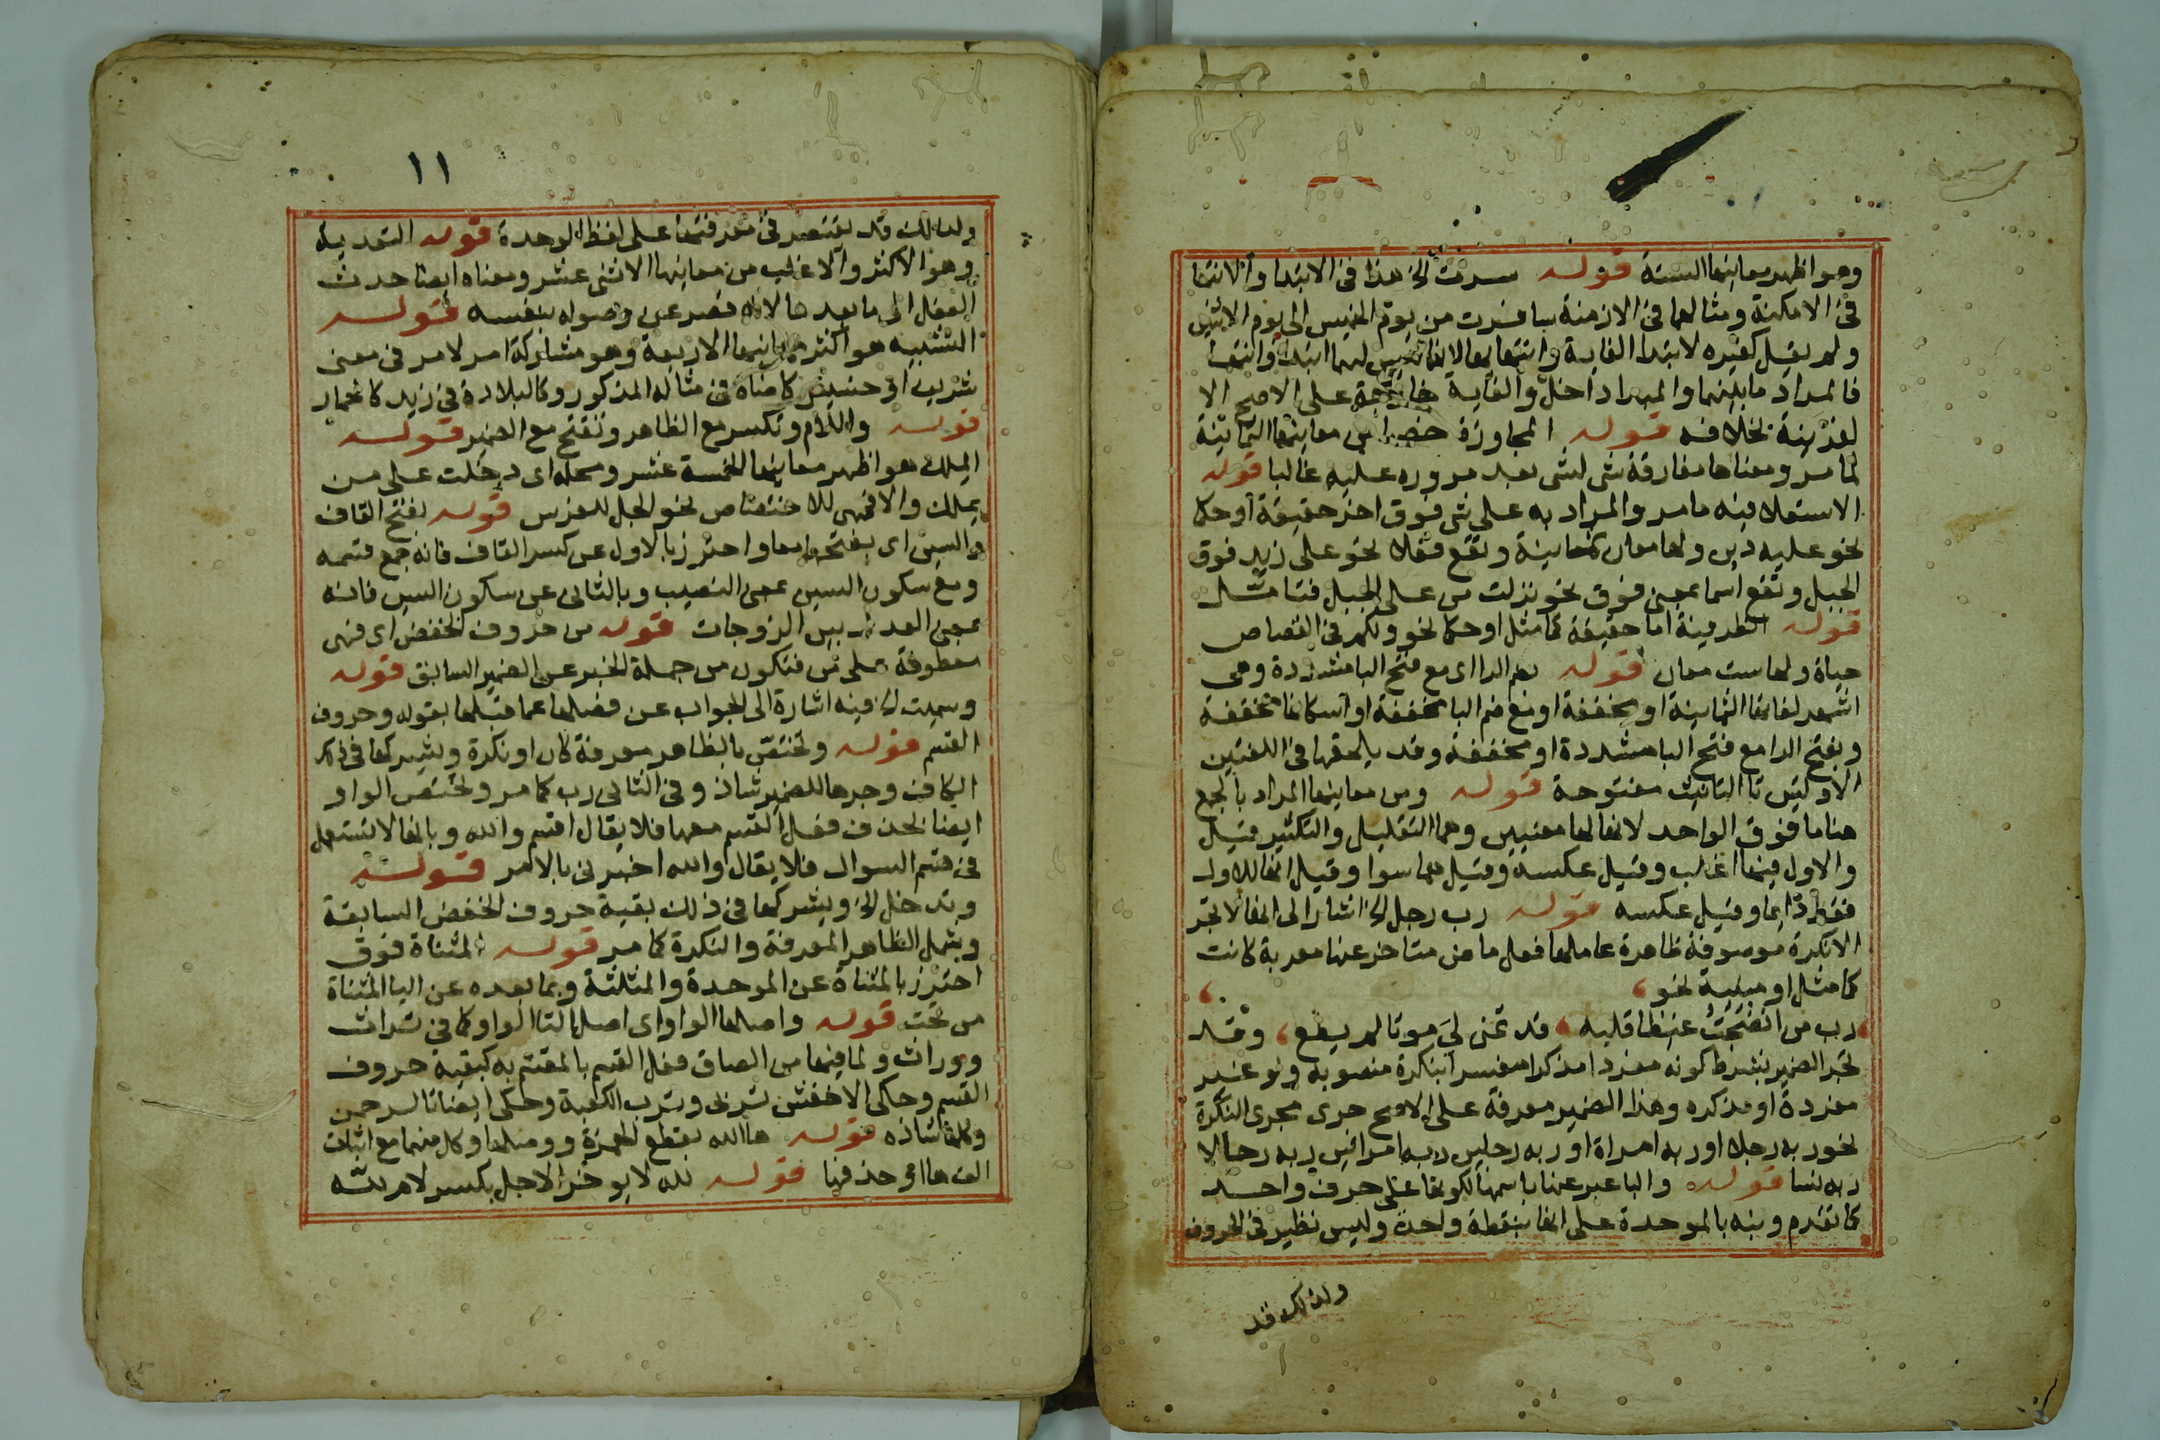 وهو اظهر معاينها الستة قوله سرت الخ هذا في الابتدا والانتها
في الامكنة ومثالهما في الازمنة سافرت من يوم الخميس الى يوم الاثنين
ولم يقل كغيره لابتدا الغاية وانتهايها لانها ليس لها ابتدا وانتها
فالمراد ما بينهما والمبدا داخل والغاية خارجة على الاصح الا
لقرينة بخلافه قوله المجاوزة خصها من معاينها الثمانية
لما مر ومعناها مفارقة شي لشي بعد مروره عليه غالبا قوله
الاستعلا فيه ما مر والمراد به على شي فوق اخر حقيقة او حكما
نحو عليه دين ولها معان ثمانية وتقع فعلا نحو على زيد فوق
الجبل وتقع اسما بمعنى فوق نحو نزلت من على الجبل فتامل
قوله الظرفية اما حقيقة كما مثل او حكما نحو ولكم في القصاص
حياة ولها ست معان قوله بضم الرا اي مع فتح البا مشددة وهي
اشهر لغاتها الثمانية او مخففة او مع ضم البا مخففة او اسكانها مخففة
وبفتح الرا مع فتح البا مشددة او مخففة وقد يلحقها في اللغتين
الاولتين تا التانيث مفتوحة قوله ومن معاينها المراد بالجمع
هنا ما فوق الواحد لانها لها معنيين وهما التقليل والتكثير قيل
والاول فيها اغلب وقيل عكسه وقيل هما سوا وقيل انها للاول
فقط دايما وقيل عكسه قوله رب رجل الخ اشار الى انها لا تجر
الا نكرة موصوفة ظاهرة عاملها فعل ماض متاخر عنها معربة كانت
كما مثل او مبنية نحو
رب من انضجت غيظا قلبه قد تمنى لي موتا لم يطع وقد
تجر الضمير بشرط كونه مفردا مذكرا مفسرا بنكرة منصوبة ولو غير
مفردة او مذكره وهذا الضمير معرفة على الاصح جرى مجرى النكرة
نحو ربه رجلا او ربه امراة او ربه رجلين ربه امراتين ربه رجالا
ربه نسا قوله والبا عبر عنها باسمها لكونها على حرف واحد
كما تقدم ونبه بالموحدة على انها بنقطة واحدة وليس نظير في الحروف
ولذلك قد
١١
ولذلك قد يقتصر في معرفتها على لفظ الوحدة قوله التعدية
وهو الاكثر والاغلب من معاينها الاثنى عشر ومعناه ايصا حدث
الفعل الى ما بعدها لانه قصر عن وصوله بنفسه قوله
التشبيه هو اكثر معاينها الاربعة وهو مشاركة امر لامر في معنى
شريف او خسيس كا مناه في مثاله المذكور وكالبلادة في زيد كالحمار
قوله واللام وتكسر مع الظاهر وتفتح مع الضمير قوله
الملك هو اظهر معاينها الخمسة عشر ومحله اي دخلت على من
يملك والا فهي للاختصاص نحو الجل للفرس قوله بفتح القاف
والسين اي بفتحهما معا واحترز بالاول عن كسر القاف فانه جمع قسمه
ومع سكون السين بمعنى النصيب وبالثاني عن سكون السين فانه
بمعنى العدل بين الزوجات قوله من حروف الخفض اي فهي
معطوفة على من فتكون من جملة الخبر عن الضمير السابق قوله
وسميت الخ فيه اشارة الى الجواب عن فصلها عما قبلها بقوله وحروف
القسم قوله وتختص بالظاهر معرفة كان او نكرة ويشركها في ذلك
الكاف وجرها للضمير شاذ وفي الثاني رب كما مر وتختص الواو
ايضا بحذف فعل القسم معها فلا يقال اقسم والله وبانها لا تستعمل
في قسم السوال فلا يقال والله اخبرني بالامر قوله
وتدخل الخ ويشركها في ذلك بقية حروف الخفض السابقة
ويشمل الظاهر المعرفة والنكرة كما مر قوله المثناة فوق
احترز بالمثناة عن الموحدة والمثلثة وبما بعده عن اليا المثناة
من تحت قوله واصلها الواو اي اصل التا الواو كما في تراث
ووراث ولما فيها من الصاق فعل القسم بالمقسم به كبقية حروف
القسم وحكى الاخفش تربى وترب الكعبة وحكى ايضا تالرحمن
وكلها شاذه قوله هاالله بقطع الهمزة ووصلها وكل منهما مع اثبات
الف ها او حذفها قوله لله لا يوخر الاجل بكسر لام لله